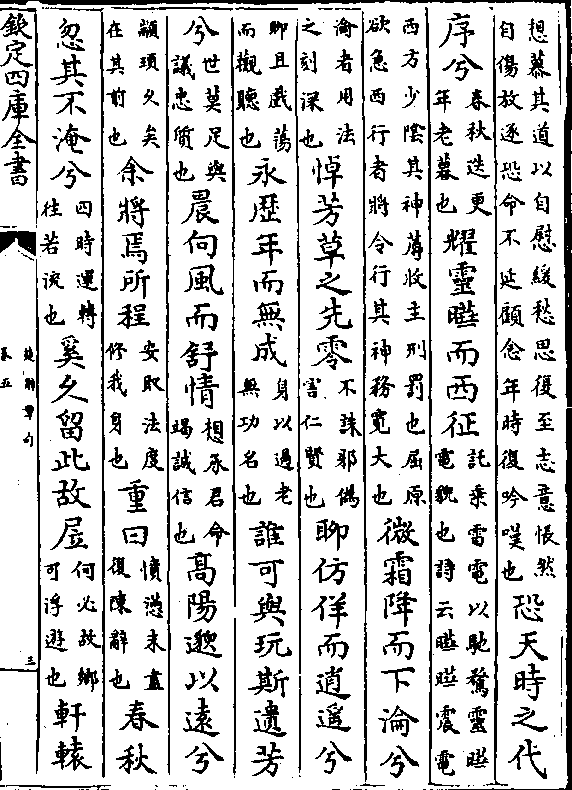 想慕其道以自慰緩愁思復至志意悵然自傷放逐恐命不延顧念年時復吟嘆也恐天時之代
序兮春秋迭更年老暮也耀靈曄而西征託乘雷電以馳騖靈曄電貌也詩云曄曄震電
西方少陰其神蓐收主刑罰也屈原欲急西行者將令行其神務寛大也微霜降而下淪兮
淪者用法之刻深也悼芳草之先零不誅邪偽害仁賢也聊仿佯而逍遥兮
聊且戲蕩而觀聽也永歷年而無成身以過老無功名也誰可與玩斯遺芳
兮世莫足與議忠質也晨向風而舒情想承君命竭誠信也高陽邈以遠兮
顓頊久矣在其前也余將焉所程安取法度修我身也重曰憤懣未盡復陳辭也春秋
忽其不淹兮四時運轉往若流也奚久留此故居何必故鄉可浮遊也軒轅
欽定四庫全書
楚辭章句
卷五
三